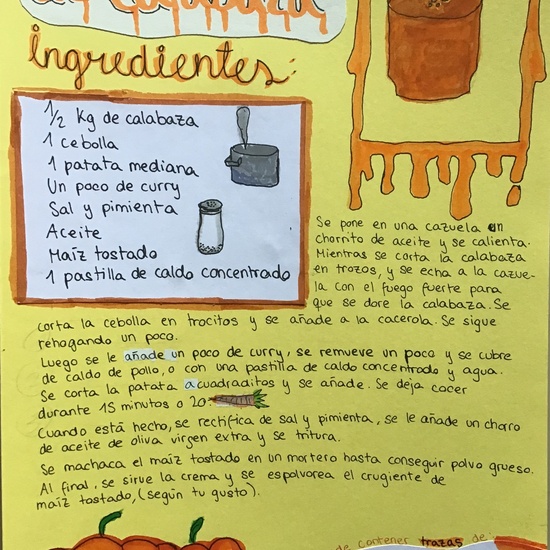 calabaza
ingredientes:
1/2 Kg de calabaza
1 cebolla
1 patata mediana
Un poco de curry
Sal y pimienta
Aceite
Maíz tostado
1 pastilla de caldo concentrado
Se pone en una cazuela un
chorrito de aceite y se calienta.
Mientras se corta la calabaza
en trozos, y se echa a la cazue-
la con el fuego fuerte para
que se dore la calabaza. Se
corta la cebolla en trocitos y se añade a la cacerola. Se sigue
rehogando un poco.
Luego se le añade un poco de curry, se remueve un poco y se cubre
de caldo de pollo, o con una pastilla de caldo concentrado y agua.
Se corta la patata a cuadraditos y se añade. Se deja cocer
durante 15 minutos o 20.
Cuando está hecho, se rectifica de sal y pimienta, se le añade un chorro
de aceite de oliva virgen extra y se tritura.
Se machaca el maíz tostado en un mortero hasta conseguir polvo grueso.
Al final, se sirve la crema y se espolvorea el crugiente de
maíz tostado, (según tu gusto).
de contener trazas de